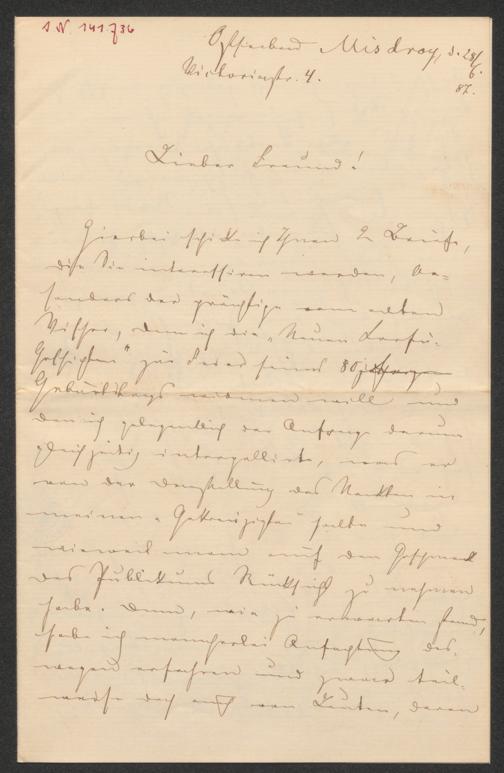 I N. 141.736
Ostseebad Misdroy, d. 28/6. 87.
Victoriastr. 4.
Lieber Freund!
Hierbei schicke ich Ihnen 2 Briefe,
die Sie interessiren werden, be-
sonders der prächtige vom alten
Vischer, dem ich die „Neuen
Geschichten" zur Feier seines 80
Geburtstags widmen will und
den ich gelegentlich der Anfrage darum
gleichzeitig interpellirte, was er
von der Darstellung des Nackten in
meinen „Gekreuzigten" halte und
wieweit man auf den Geschmack
des Publikums Rücksicht zu nehmen
habe. Denn, wie zu erwarten stand,
habe ich mancherlei Anfechtung des-
wegen erfahren und zwar teil-
weise doch auch von Leuten, deren